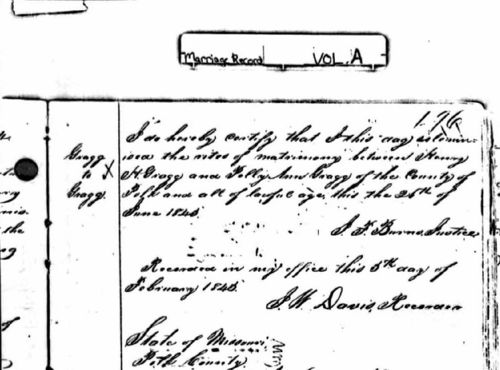 Marriage Record VOL. A
176
I do hereby certify that I this day solemn-
ised the rites of matrimony between Henry
Gragg
to
Gragg
H Gragg and Polly Ann Gragg of the County of
Polk and all of lawful age, this the 26th of
June 1845
J. F. Burns, Justice
Recorded in my office this 5th day of
February 1846.
J. W. Davis, Recorder
State of Missouri
Polk County
the
of